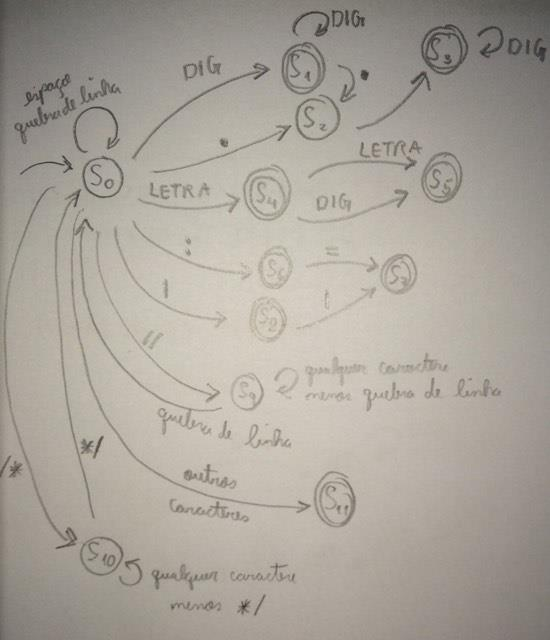 DIG
S1
DIG
S3
DIG
espaço
quebra de linha
.
.
S2
S0
LETRA
LETRA
S4
DIG
S5
:
S6
=
S7
|
S8
//
S9
qualquer caractere
menos quebra de linha
quebra de linha
*/
/*
outros
caracteres
S11
S10
qualquer caractere
menos */